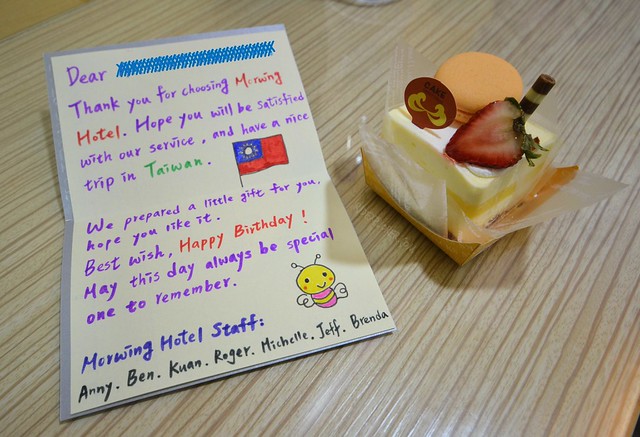 Dear
Thank you for choosing Morwing
Hotel. Hope you will be satisfied
with our service, and have a nice
trip in Taiwan.
We prepared a little gift for you.
hope you like it.
Best wish, Happy Birthday!
May this day always be special
one to remember.
Morwing Hotel Staff:
Anny. Ben. Kuan. Roger. Michelle. Jeff. Brenda
CAKE